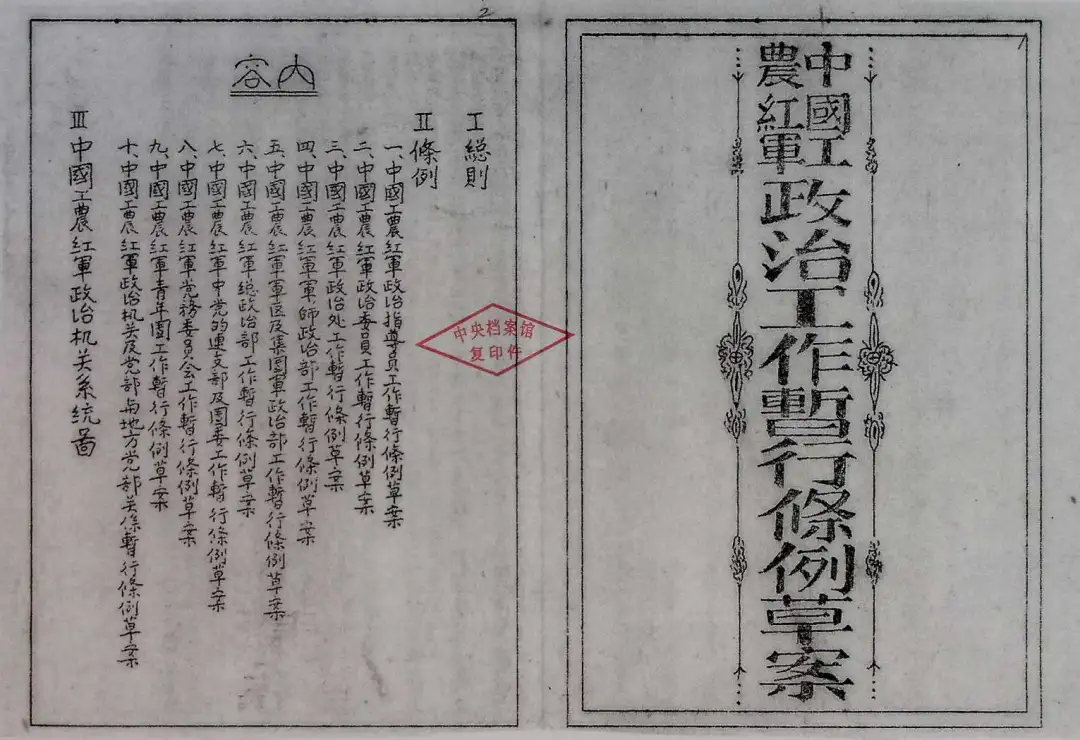 1
中國工
農紅軍
政治工作暫行條例草案
2
內容
I 總則
II 條例
一、中國工農紅軍政治指導員工作暫行條例草案
二、中國工農紅軍政治委員工作暫行條例草案
三、中國工農紅軍政治处工作暫行條例草案
四、中國工農紅軍軍師政治部工作暫行條例草案
五、中國工農紅軍軍区及集團軍政治部工作暫行條例草案
六、中國工農紅軍總政治部工作暫行條例草案
七、中國工農紅軍中党的連支部及團委工作暫行條例草案
八、中國工農紅軍党務委員会工作暫行條例草案
九、中國工農紅軍青年團工作暫行條例草案
十、中國工農紅軍政治机关及党部与地方党部关係暫行條例草案
III 中國工農紅軍政治机关系统畐
中央档案馆
复印件